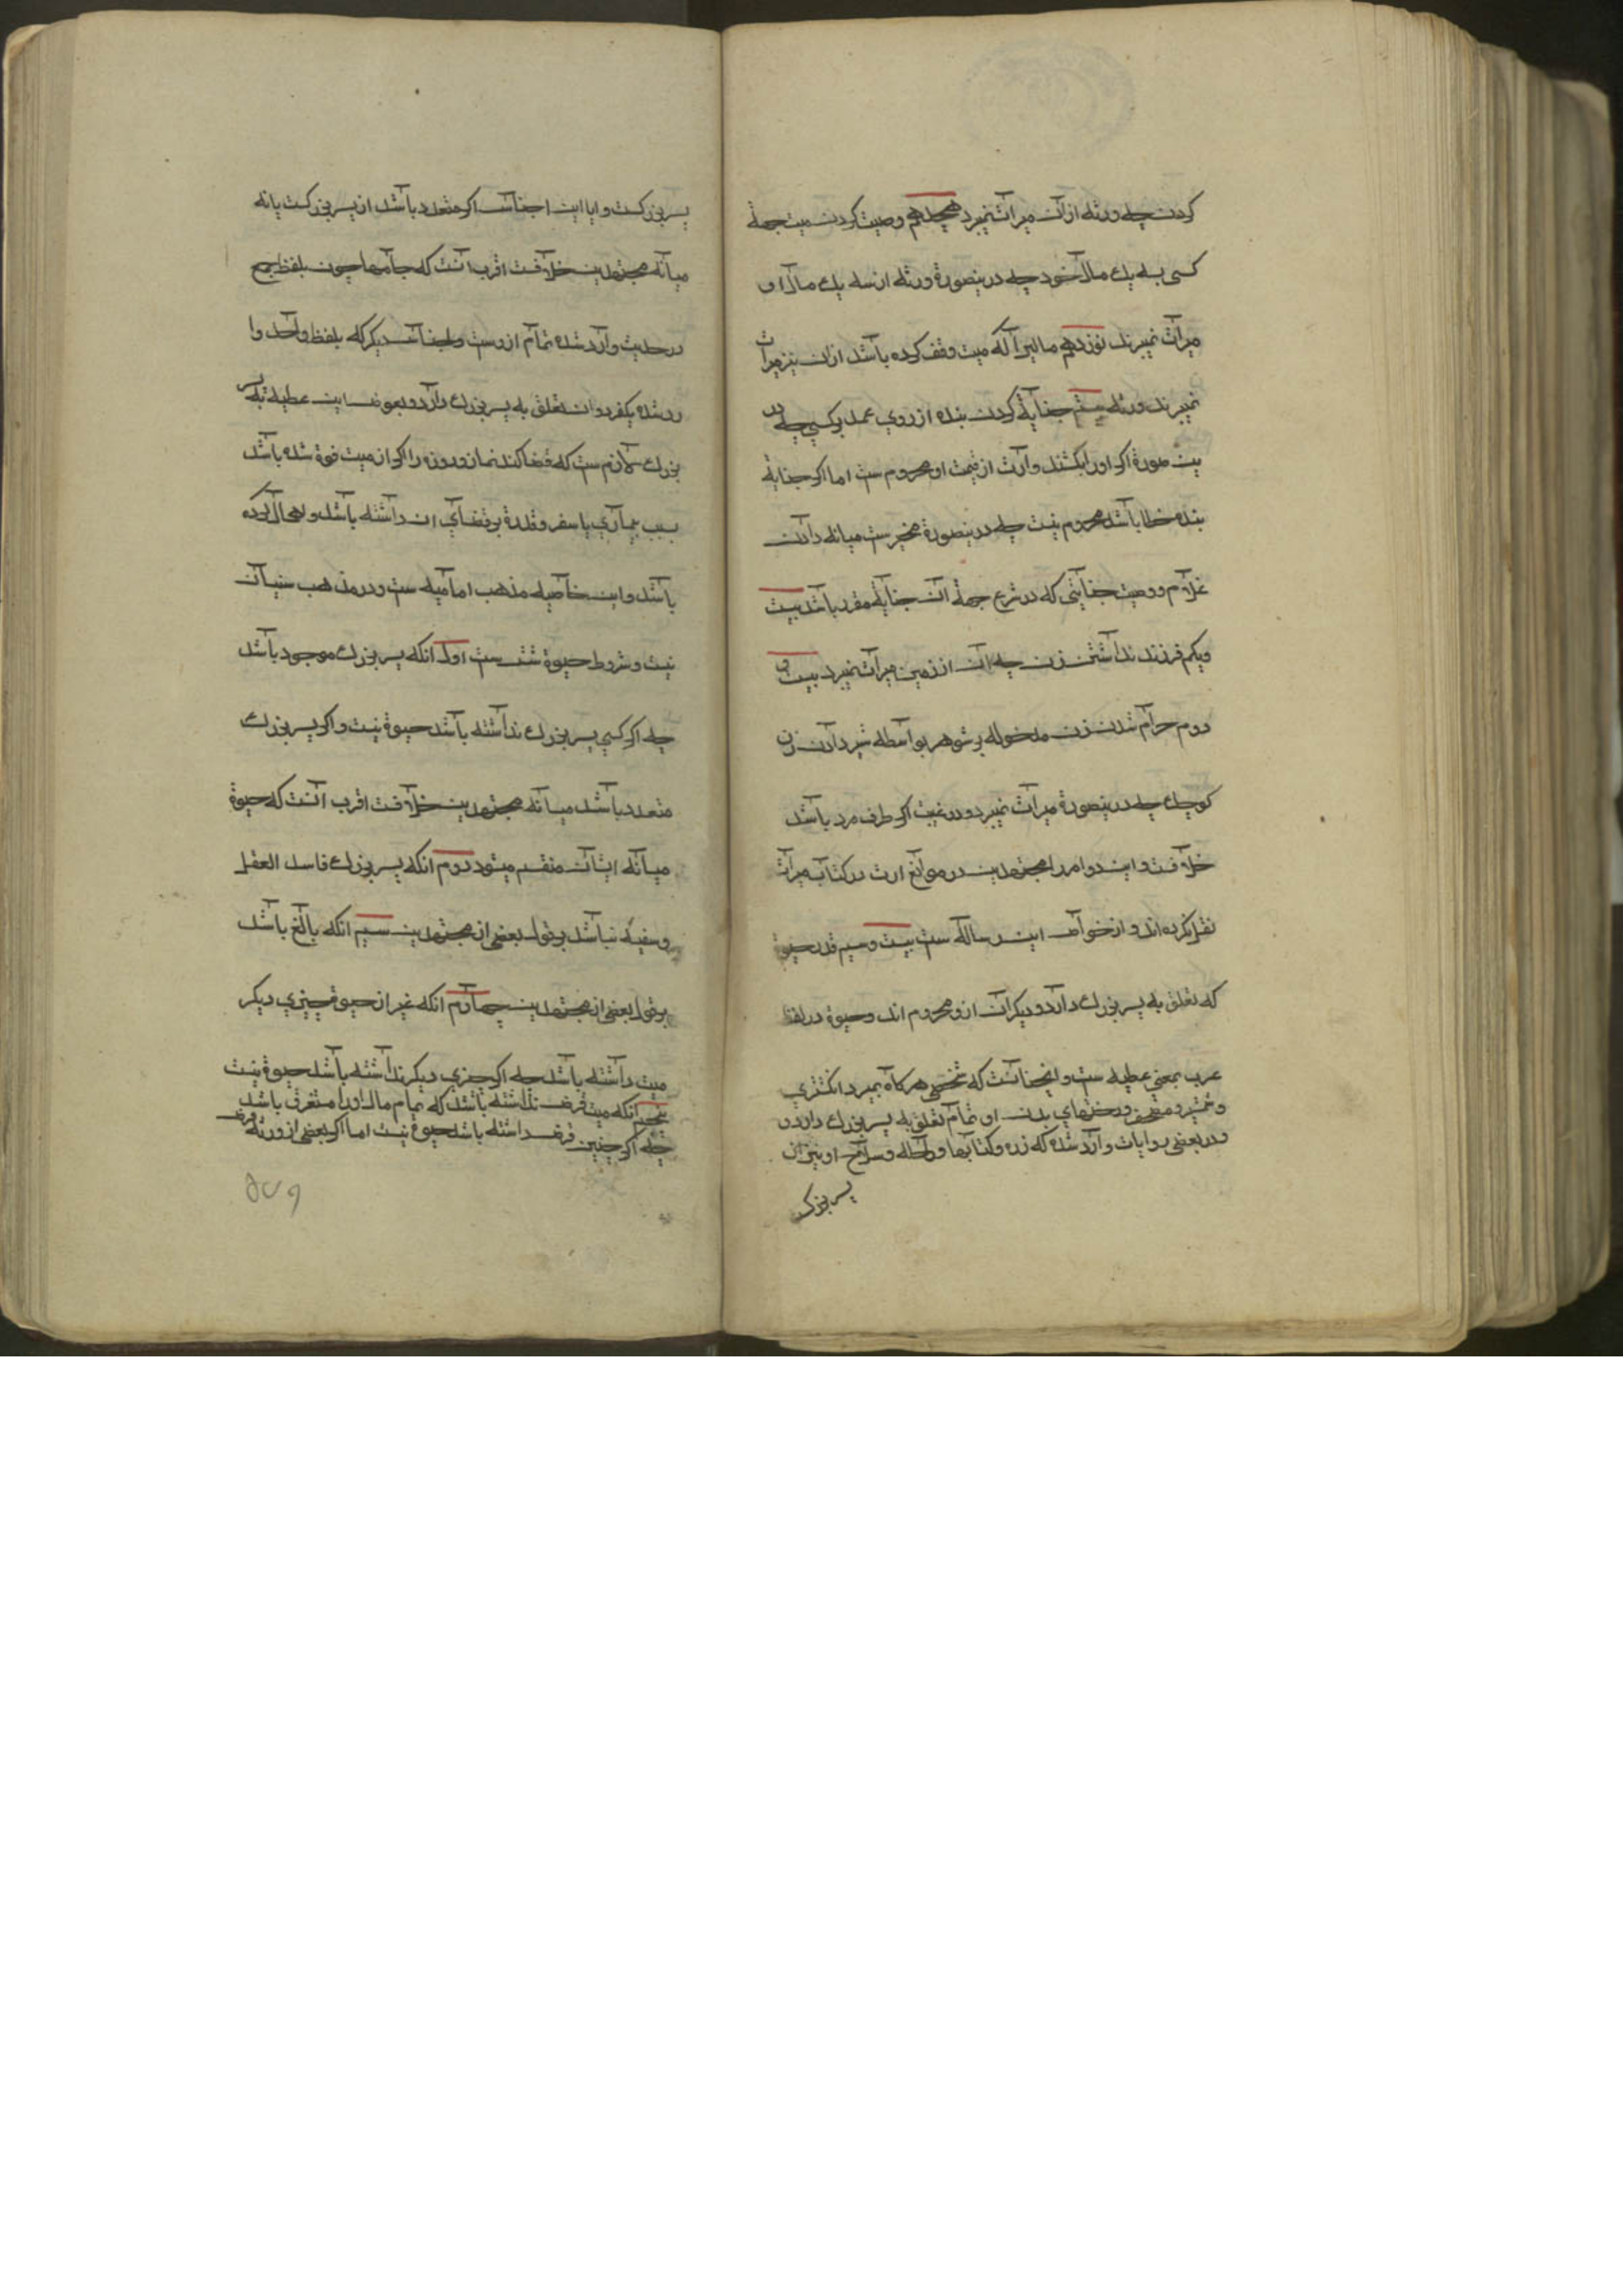 کردن چه ورثه ازان میراث نمیبرد هیجدهم وصیت کردن میت جهة
کسی به یک مال خود چه درینصورة ورثه از سه یک مال او
میراث نمیبرند نوزدهم مالیرا که میت وقف کرده باشد ازان نیز میراث
نمیبرند ورثه بیستم جنایة کردن بنده از روی عمد بر کسی چه در
ین صورة اکر اورا بکشند وارث از قیمت او محروم ست اما اکر جنایة
بنده خطا باشد محروم نیست چه درینصورة مخیر ست میانه دادن
غلام و جنایتی که در شرع جهة ان جنایة مقرر باشد بیست
ویکم فرزند نداشتن زن چه ان از زمین میراث نمیبرد بیست و
دوم حرام شدن زن مدخوله بر شوهر بواسطه شیر دادن زن
کوچک چه درینصورة میراث نمیبرد و در غیبت اکر طرف مرد باشد
خلافست و این دو امر را مجتهدین در موانع ارث در کتاب میراث
نقل نکرده اند و از خواص این رساله ست بیست و سیم قدر حبوة
که تعلق به پسر بزرک دارد و دیکران ازو محروم اند و حبوة در لغة
عرب بمعنی عطیه ست و اینجا انست که شخصی هرکاه بمیرد انکشتری
و شمشیر و مصحف و رختهای بدن او تمام تعلق به پسر بزرک دارد و
و در بعضی روایات وارد شده که زره و کتابها و راحله و سلاح او نیز از
پسر بزرک
پسر بزرکست و ایا این اجناس اکر متعدد باشد از پسر بزرکست یا نه
میانه مجتهدین خلافست اقرب انست که جامها چون بلفظ جمع
در حدیث وارد شده تمام ازوست و اجناس دیکر که بلفظ واحد وا
رد شده یکفرد ان تعلق به پسر بزرک دارد و بعوض این عطیه به پسر
بزرک لازم ست که قضا کند نماز و روزه را اکر از میت فوة شده باشد
بسبب بیماری یا سفر و قدرة بر قضای ان داشته باشد و اهمال کرده
باشد و این خاصیه مذهب امامیه ست و در مذهب سنیان
نیست و شروط حبوة شش ست اول انکه پسر بزرک موجود باشد
چه اکر کسی پسر بزرک نداشته باشد حبوة نیست و اکر پسر بزرک
متعدد باشد میانه مجتهدین خلافست اقرب انست که حبوة
میانه ایشان منقسم میشود دوم انکه پسر بزرک فاسد العقل
و سفیه نباشد بر قول بعضی از مجتهدین سیم انکه بالغ باشد
بر قول بعضی از مجتهدین چهارم انکه غیر از حبوة چیزی دیکر
میت داشته باشد چه اکر چیزی دیکر نداشته باشد حبوة نیست
پنجم انکه میت قرض نداشته باشد که تمام مال اورا مستغرق باشد
چه اکر چنین قرض داشته باشد حبوة نیست اما اکر بعضی از ورثه قرض